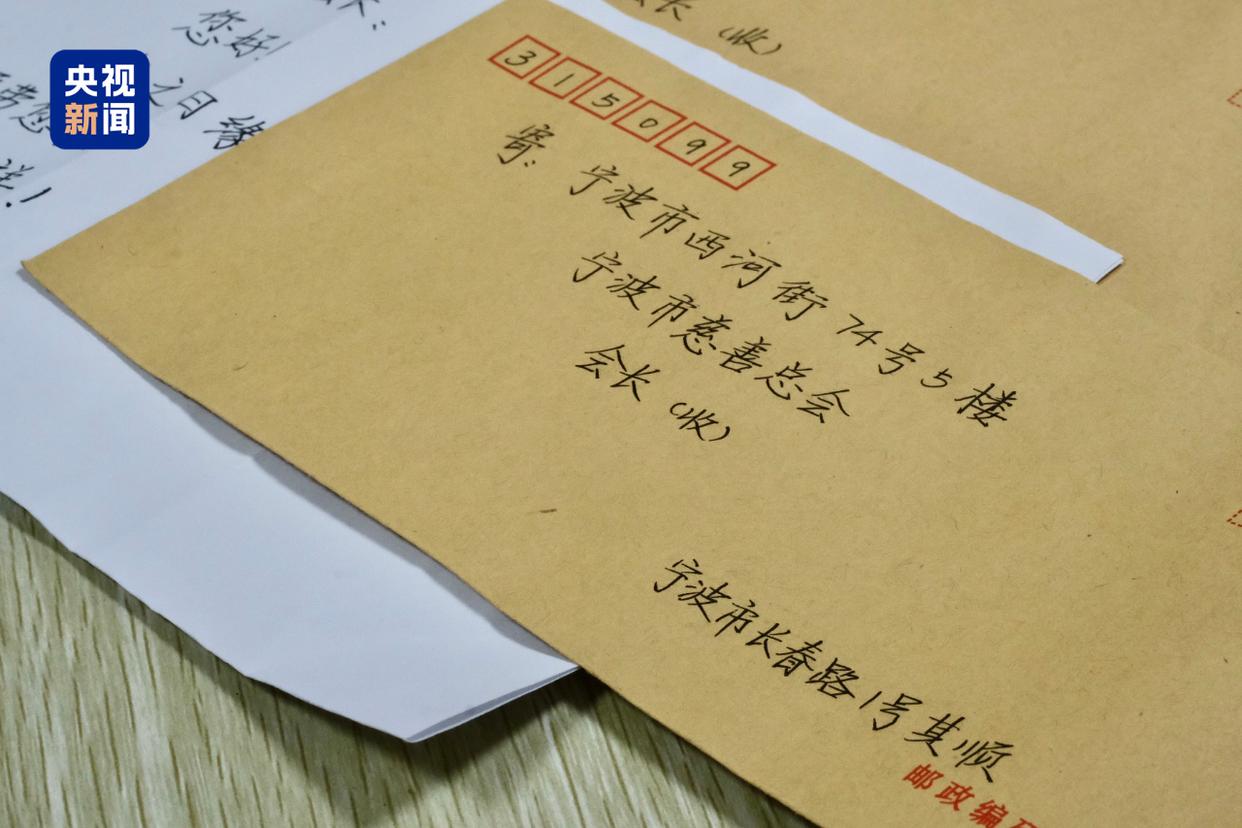 央视
新闻
您好!
之日
祥!
会长(收)
315099
寄:
宁波市西河街74号5楼
宁波市慈善总会
会长(收)
宁波市长春路1号其顺
邮政编